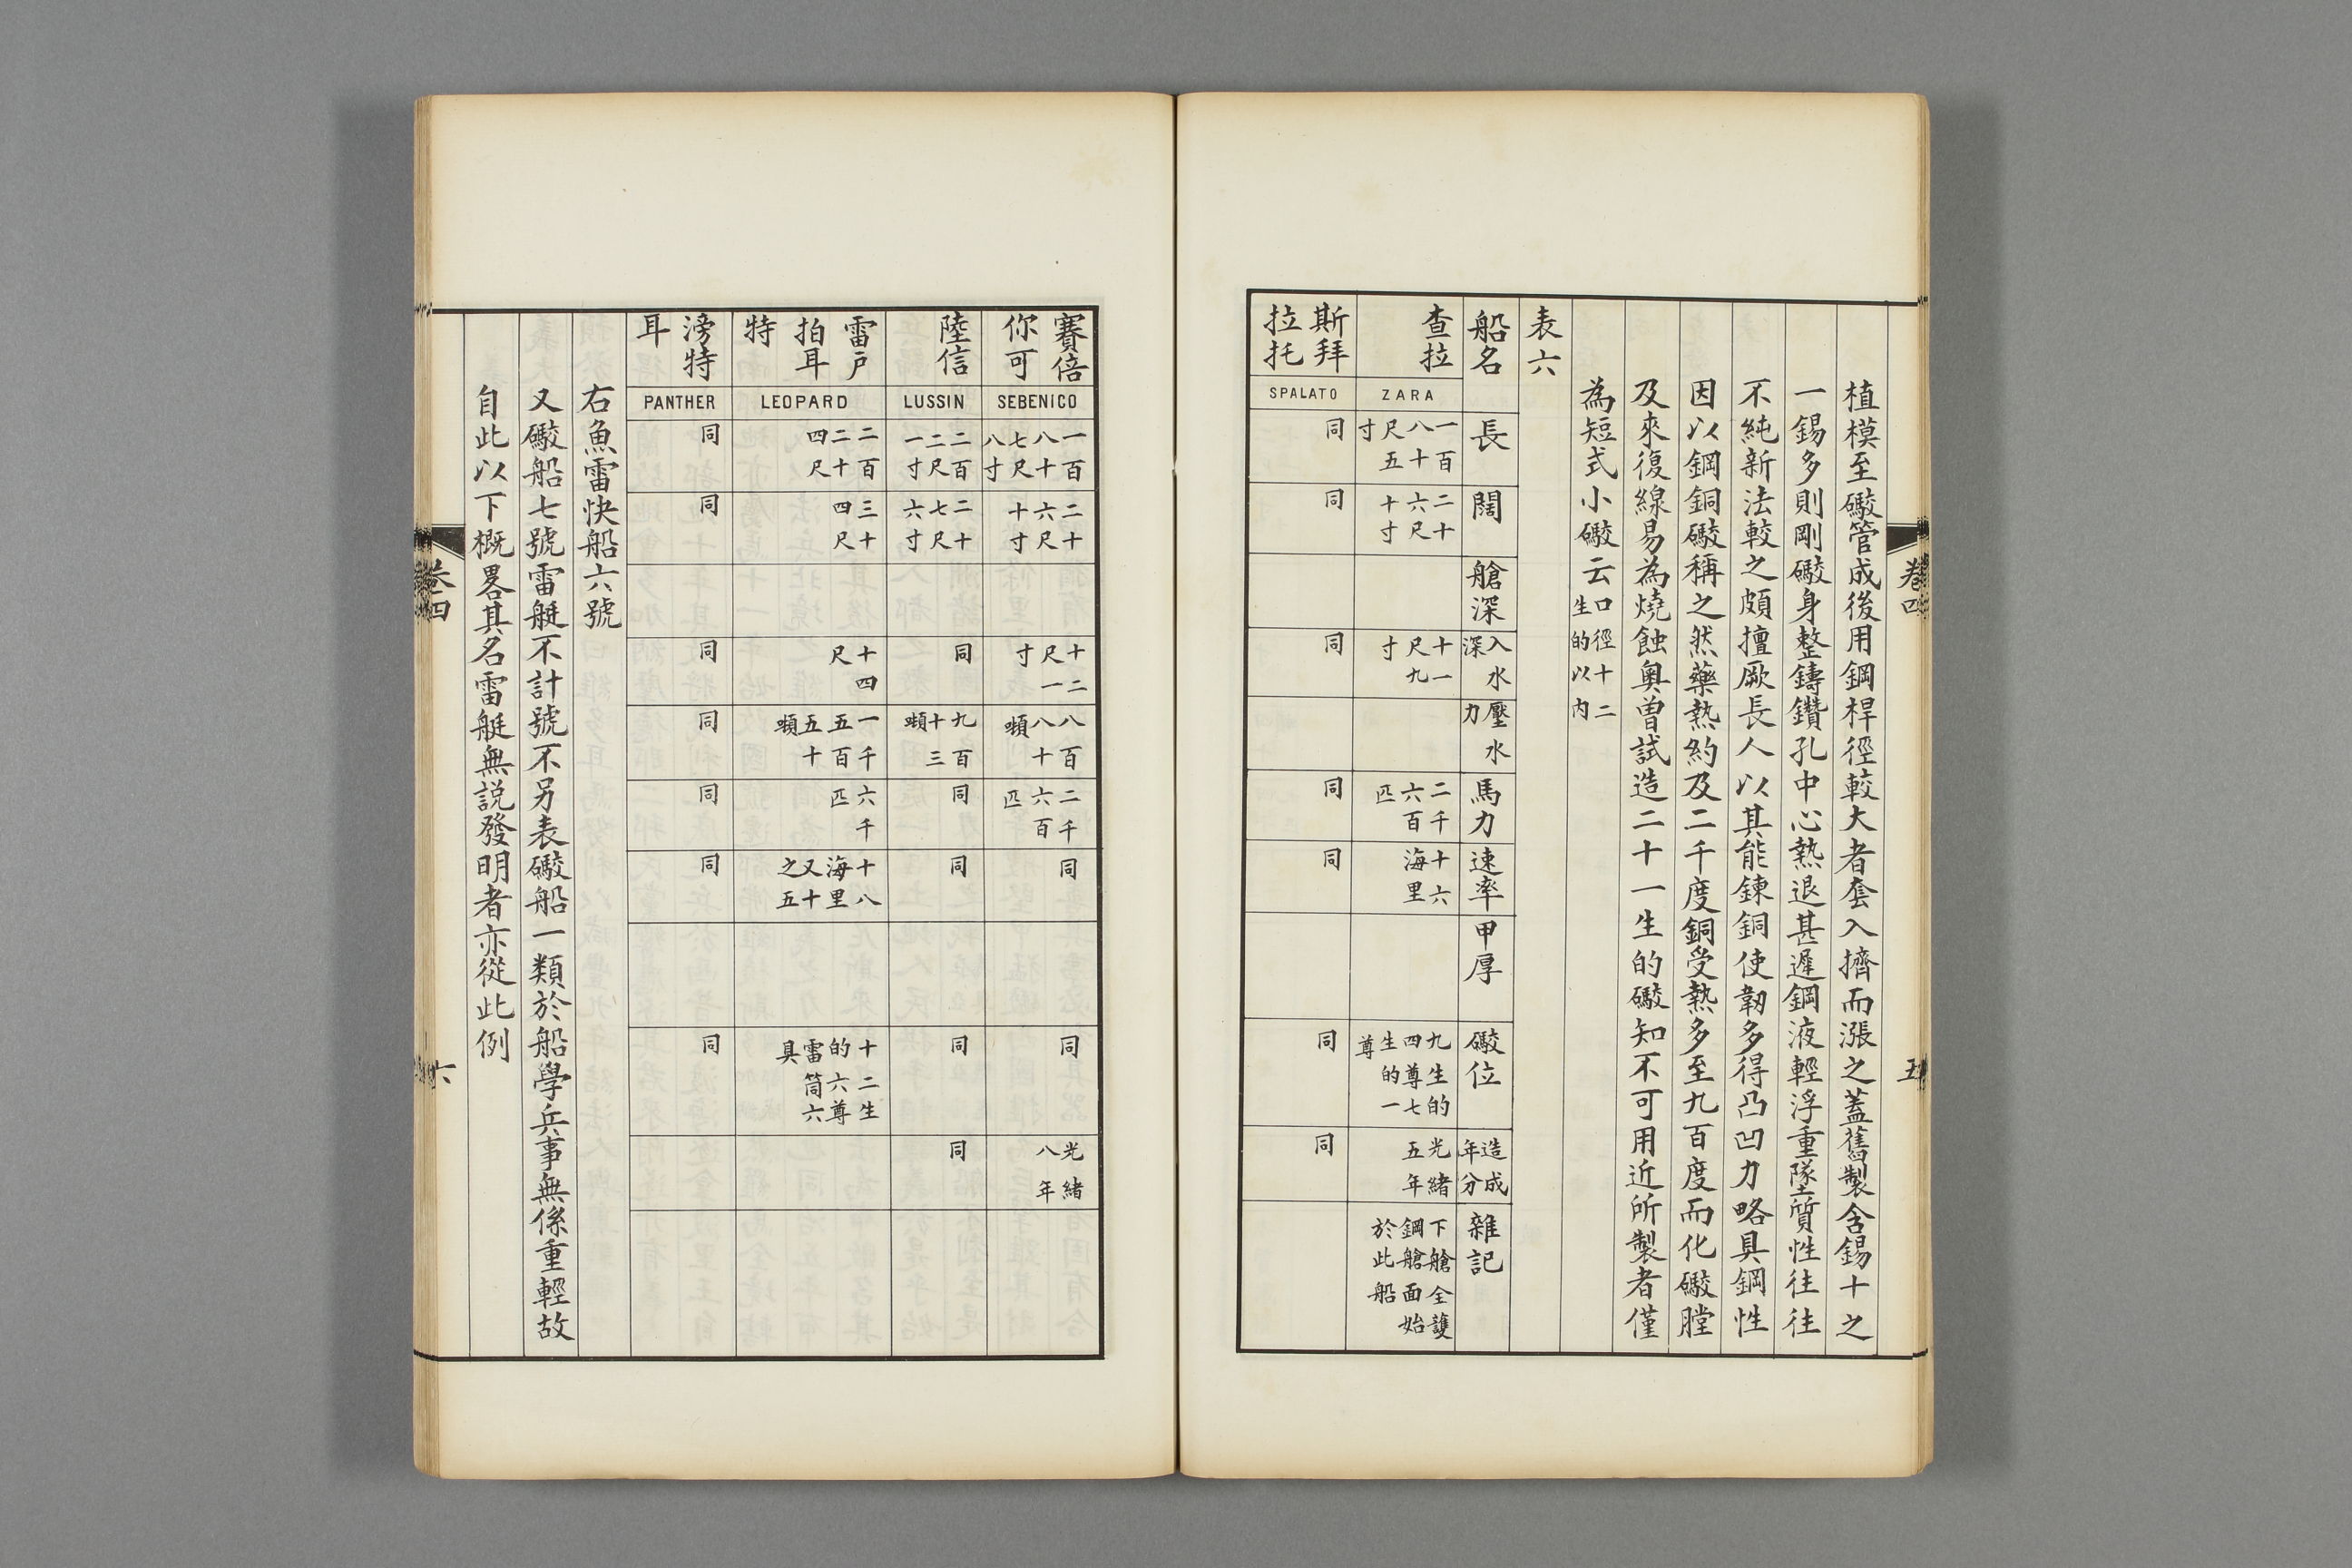 植模至礮管成後用鋼桿徑較大者套入擠而漲之蓋舊製含錫十之
一錫多則剛礮身整鑄鑽孔中心熱退甚遲鋼液輕浮重墜質性往往
不純新法較之頗擅厥長人以其能鍊銅使韌多得凸凹力略具鋼性
因以鋼銅礮稱之然藥熱約及二千度銅受熱多至九百度而化礮膛
及來復線易為燒蝕奧曾試造二十一生的礮知不可用近所製者僅
為短式小礮云口徑十二生的以内
表六
船名
長
闊
艙深
入水深
壓水力
馬力
速率
甲厚
礮位
造成年分
雜記
查拉
ZARA
一百八十尺五寸
二十六尺十寸
十一尺九寸
二千六百匹
十六海里
九生的四尊七生的一尊
光緒五年
下艙全護鋼艙面始於此船
斯拜拉托
SPALATO
同
同
同
同
同
同
同
卷四
五
賽倍你可
SEBENICO
一百八十七尺八寸
二十六尺十寸
十二尺一寸
八百八十噸
二千六百匹
同
同
光緒八年
陸信
LUSSIN
二百二尺一寸
二十七尺六寸
同
九百十三噸
同
同
同
同
雷戶拍耳特
LEOPARD
二百二十四尺
三十四尺
十四尺
一千五百五十噸
六千匹
十八海里又十之五
十二生的六尊雷筒六具
滂特耳
PANTHER
同
同
同
同
同
同
同
右魚雷快船六號
又礮船七號雷艇不計號不另表礮船一類於船學兵事無係重輕故
自此以下概畧其名雷艇無説發明者亦從此例
卷四
六